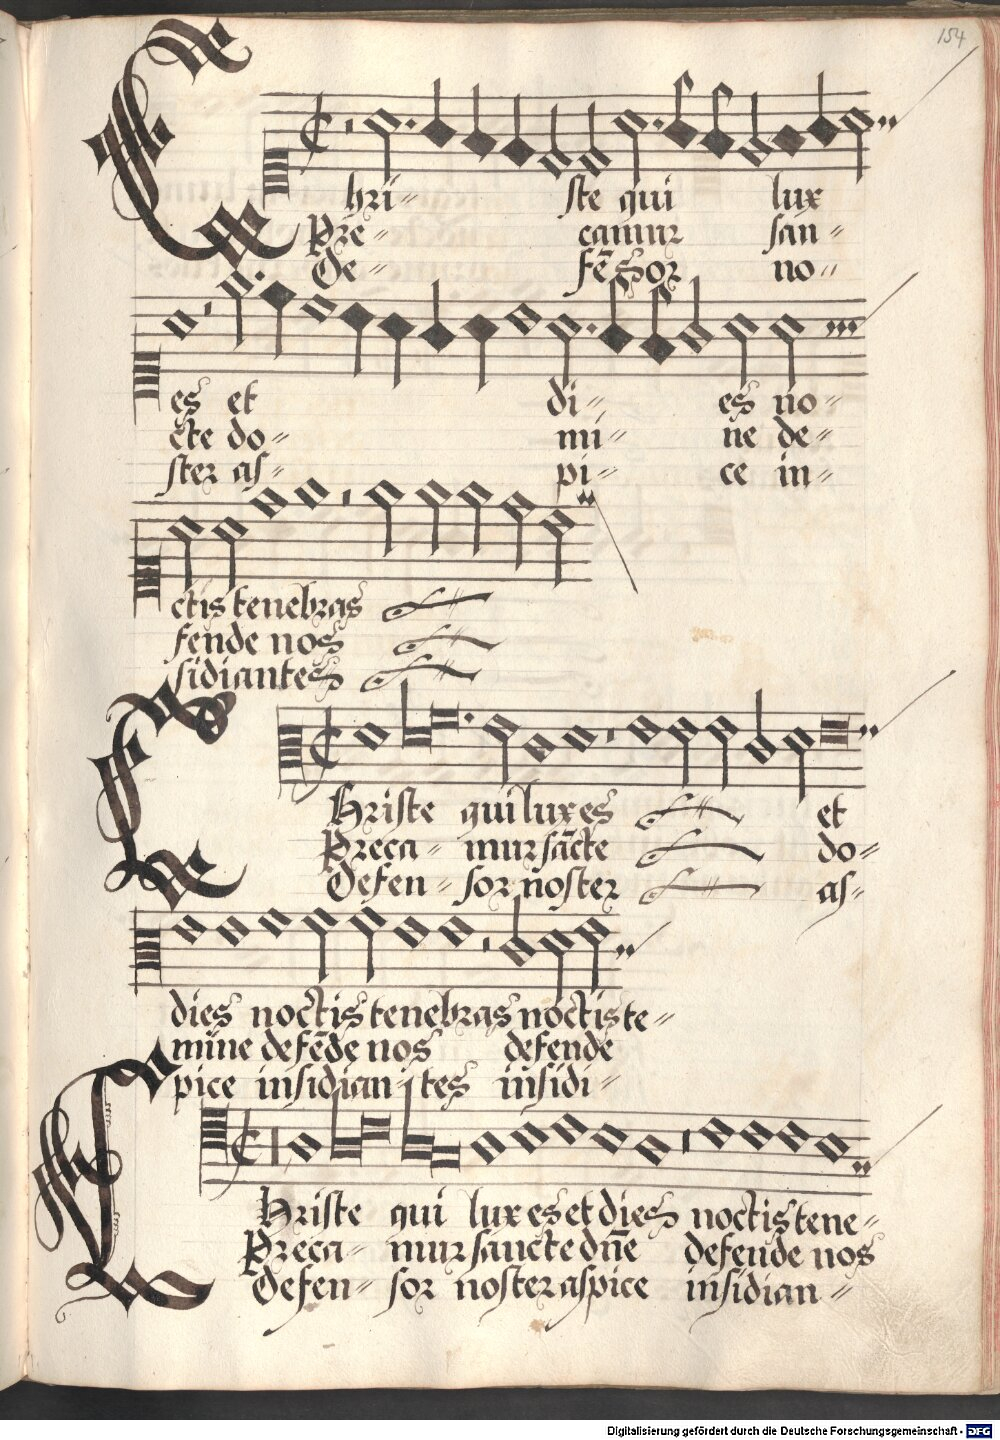 154
Chri- ste qui lux
Pre- camur san-
De- fēsor no-
es et di- es no-
cte do- mi- ne de-
ster as- pi- ce in-
ctis tenebras
fende nos
sidiantes
Christe qui lux es et
Preca- mur sācte do-
Defen- sor noster as-
dies noctis tenebras noctis te-
mine defēde nos defende
pice insidian- tes insidi-
Christe qui lux es et dies noctis tene-
Preca- mur sancte dn̄e defende nos
Defen- sor noster aspice insidian-
Digitalisierung gefördert durch die Deutsche Forschungsgemeinschaft - DFG